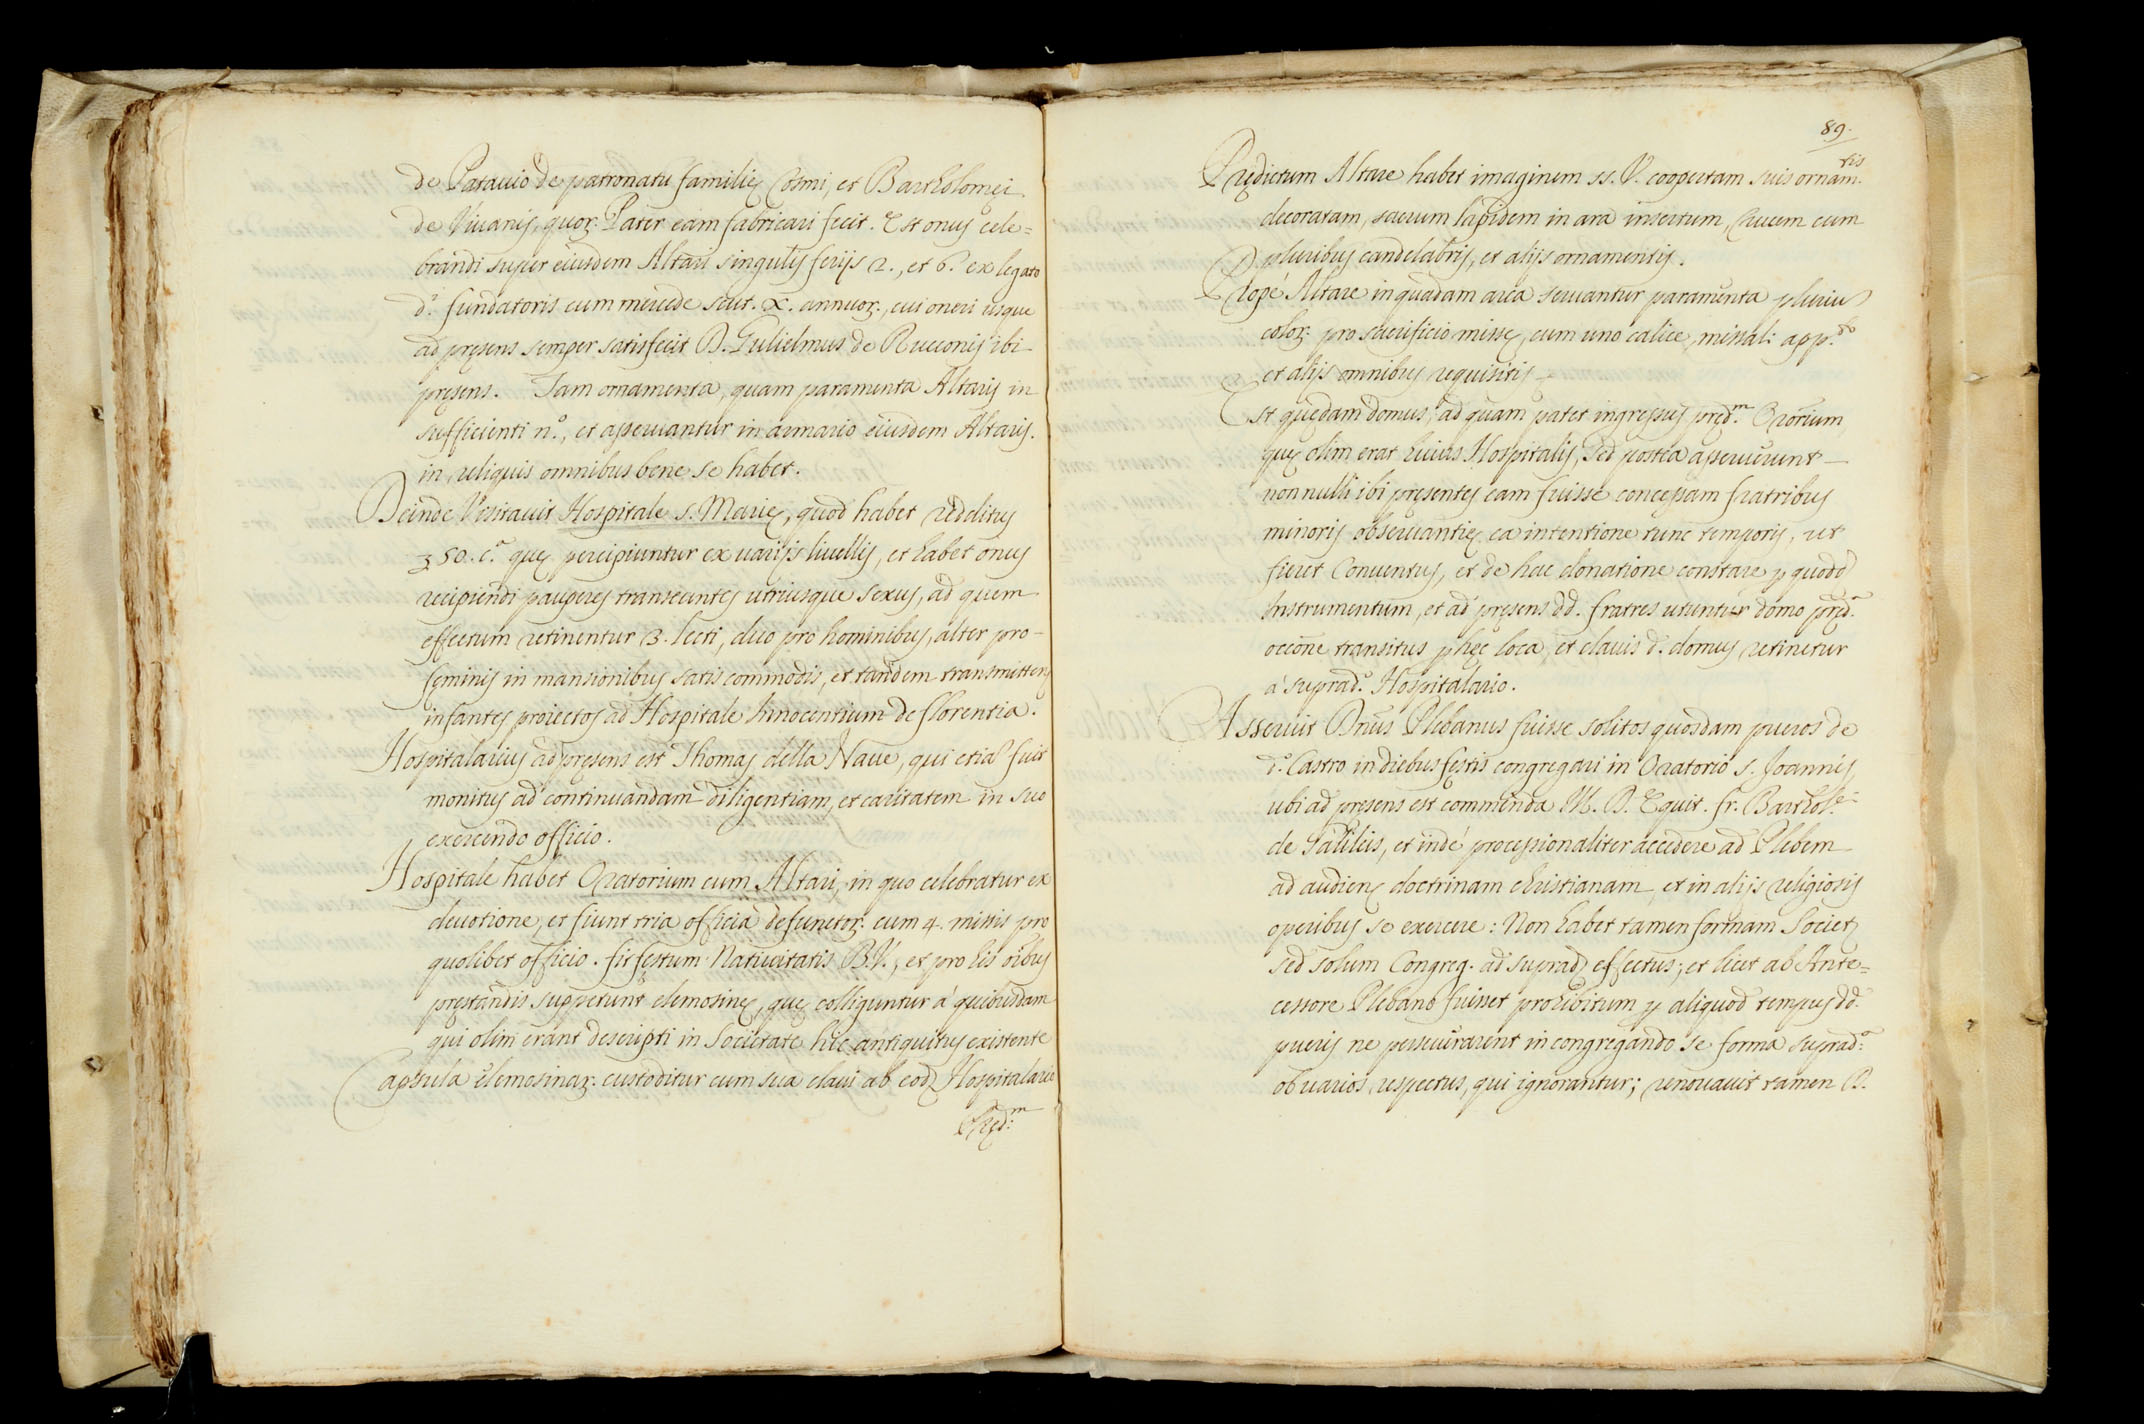 de Patauio de patronatu familię Cosmi, et Bartholomęi
de Viuanis, quoꝝ: Pater eam fabricari fecit. Est onus cele=
brandi super eiusdem Altari singulis ferijs 2., et 6. ex legato
d.ⁱ fundatoris cum mercede scut. X. annuoꝝ., cui oneri usque
ad pręsens semper satisfecit D. Gulielmus de Rucconis ibi
pręsens. Tam ornamenta, quam paramenta Altaris in
sufficienti n.º, et asseruantur in armario eiusdem Altaris.
in reliquis omnibus bene se habet.
Deinde Visitauit Hospitale s. Marię, quod habet redditus
50. c.ª quę percipiuntur ex uarijs liuellis, et habet onus
recipiendi pauperes transeuntes utriusque sexus, ad quem
effectum retinentur 3. lecti, duo pro hominibus, alter pro
fęminis in mansionibus satis commodis, et tandem transmitten
infantes proiectos ad Hospitale Innocentium de florentia.
Hospitalarius ad pręsens est Thomas della Naue, qui etiã fuit
monitus ad continuandam diligentiam, et caritatem in suo
exercendo officio.
Hospitale habet Oratorium cum Altari, in quo celebratur ex
deuotione, et fiunt tria officia defunctoꝝ: cum 4. missis pro
quolibet officio. fit festum Natiuitatis B.V., et pro his oĩbus
pręstandis suppetunt elemosinę, quę colliguntur á quibusdam
qui olim erant descripti in Societate hic antiquitus existente
Capsula elemosinaꝝ: custoditur cum sua claui ab eod Hospitalario
Pręd:ᵐ
89.
Prędictum Altare habet imaginem ss. V. coopertam suis ornam.ᵗⁱˢ
decoratam, sacrum lapidem in ara insertum, Crucem cum
pluribus candelabris, et alijs ornamentis.
Propé Altare in quadam arca seruantur paramenta pluriũ
coloꝝ: pro sacrificio missę, cum uno calice, missal: app.ᵗᵒ
et alijs omnibus requisitis.
Est quędam domus, ad quam patet ingressus pręd.ᵐ Orõrium,
quę olim erat huius Hospitalis, sed postea asseruerunt
nonnulli ibi pręsentes eam fuisse concessam fratribus
minoris obseruantię ea intentione tunc temporis, ut
fieret Conuentus, et de hac donatione constare ꝑ quodd
Instrumentum, et ad pręsens dd. fratres utuntur domo pręd.ª
occõne transitus ꝑ hęc loca, et clauis d. domus retinetur
á suprad.º Hospitalario.
Asseruit Dnũs Plebanus fuisse solitos quosdam pueros de
d.º Castro in diebus festis congregari in Oratorio s. Joannis,
ubi ad pręsens est commenda M. D. Equit. fr. Barthol.ᵉⁱ
de Galileis, et indé processionaliter accedere ad Plebem
ad audien doctrinam christianam, et in alijs religiosis
operibus se exercere: Non habet tamen formam Societ
sed solum Congreg. ad suprad effectus; et licet ab Ante=
cessore Plebano fuisset prohibitum ꝑ aliquod tempus dd.
pueris ne perseuerarent in congregando se forma suprad:ª
ob uarios respectus, qui ignorantur; renouauit tamen D.